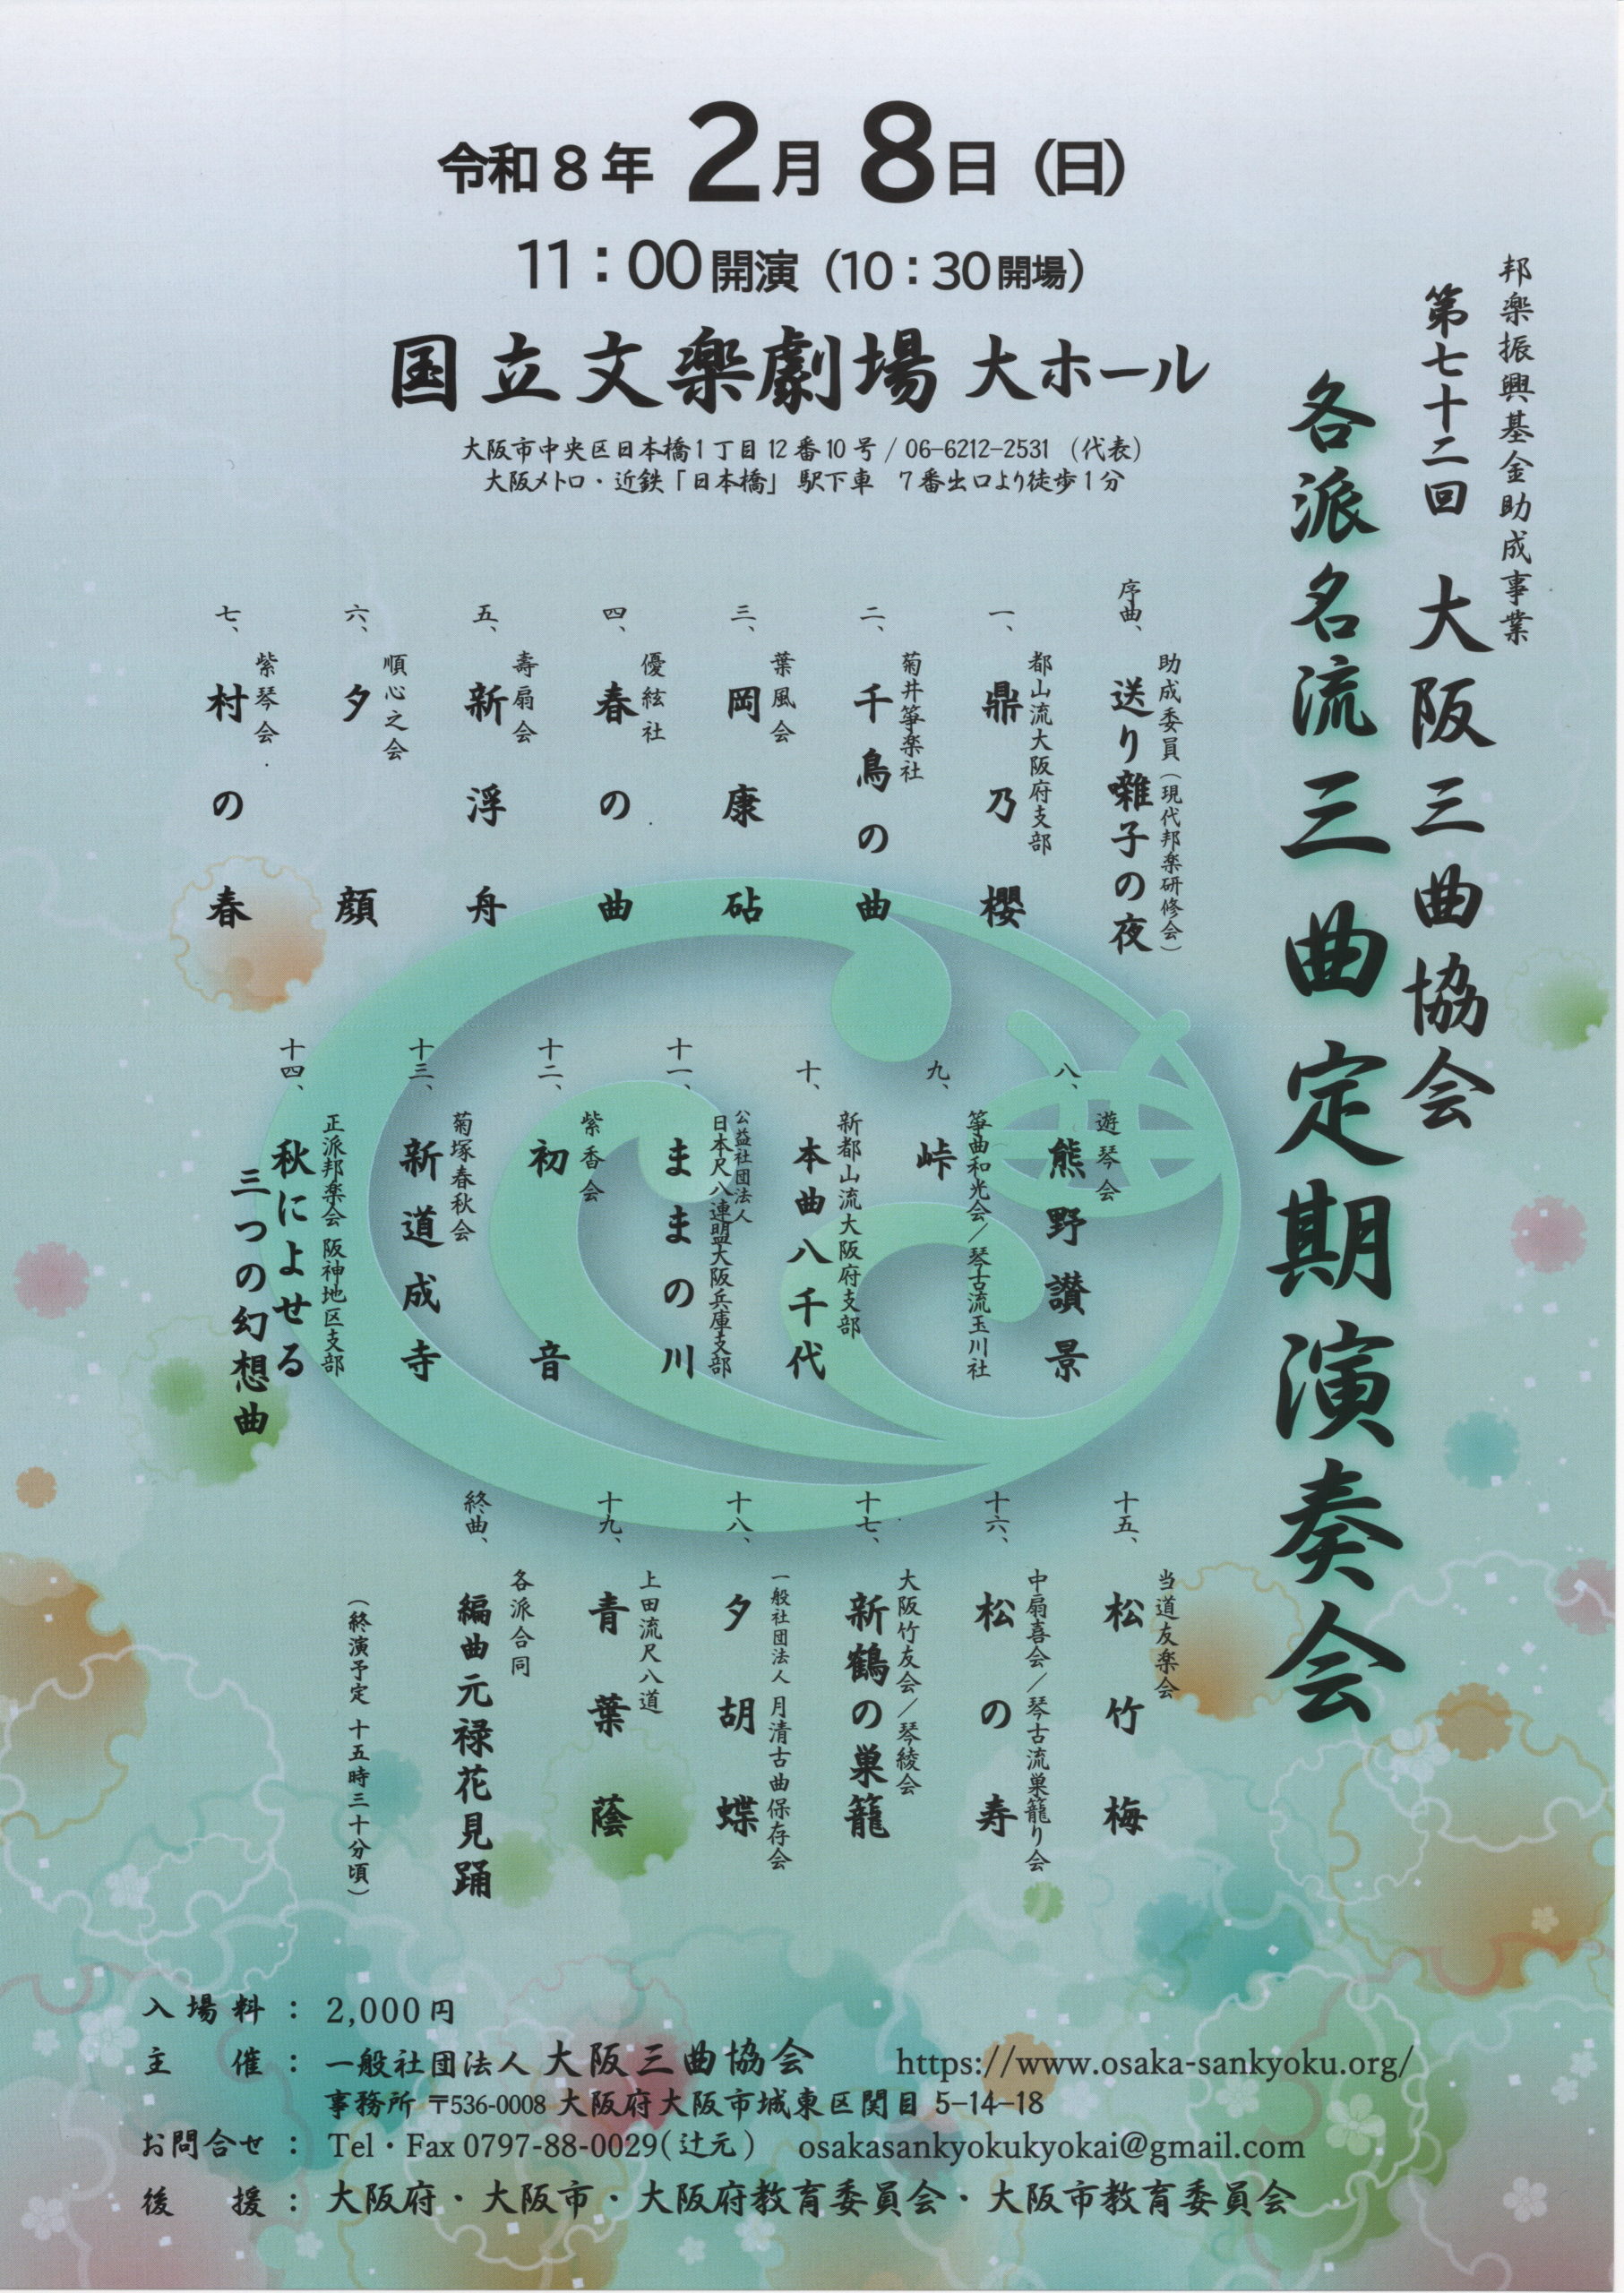 令和8年 2月 8日（日）
11：00開演（10：30開場）
国立文楽劇場 大ホール
大阪市中央区日本橋1丁目12番10号 / 06-6212-2531 （代表）
大阪メトロ・近鉄「日本橋」駅下車 7番出口より徒歩1分
邦楽振興基金助成事業
第七十二回 大阪三曲協会
各派名流三曲定期演奏会
序曲、 助成委員（現代邦楽研修会）
送り囃子の夜
一、 都山流大阪府支部
鼎乃櫻
二、 菊井箏楽社
千鳥の曲
三、 葉風会
岡康砧
四、 優絃社
春の曲
五、 壽扇会
新浮舟
六、 順心之会
夕顔
七、 紫琴会
村の春
八、 遊琴会
熊野讃景
九、 箏曲和光会／琴古流玉川社
峠
十、 新都山流大阪府支部
本曲八千代
十一、 公益社団法人
日本尺八連盟大阪兵庫支部
ままの川
十二、 紫香会
初音
十三、 菊塚春秋会
新道成寺
十四、 正派邦楽会 阪神地区支部
秋によせる
三つの幻想曲
十五、 当道友楽会
松竹梅
十六、 中扇喜会／琴古流巣籠り会
松の寿
十七、 大阪竹友会／琴綾会
新鶴の巣籠
十八、 一般社団法人 月清古曲保存会
夕胡蝶
十九、 上田流尺八道
青葉蔭
終曲、 各派合同
編曲元禄花見踊
（終演予定 十五時三十分頃）
入場料：2,000円
主催：一般社団法人 大阪三曲協会 https://www.osaka-sankyoku.org/
事務所 〒536-0008 大阪府大阪市城東区関目 5-14-18
お問合せ：Tel・Fax 0797-88-0029（辻元） osakasankyokukyokai@gmail.com
後援：大阪府・大阪市・大阪府教育委員会・大阪市教育委員会